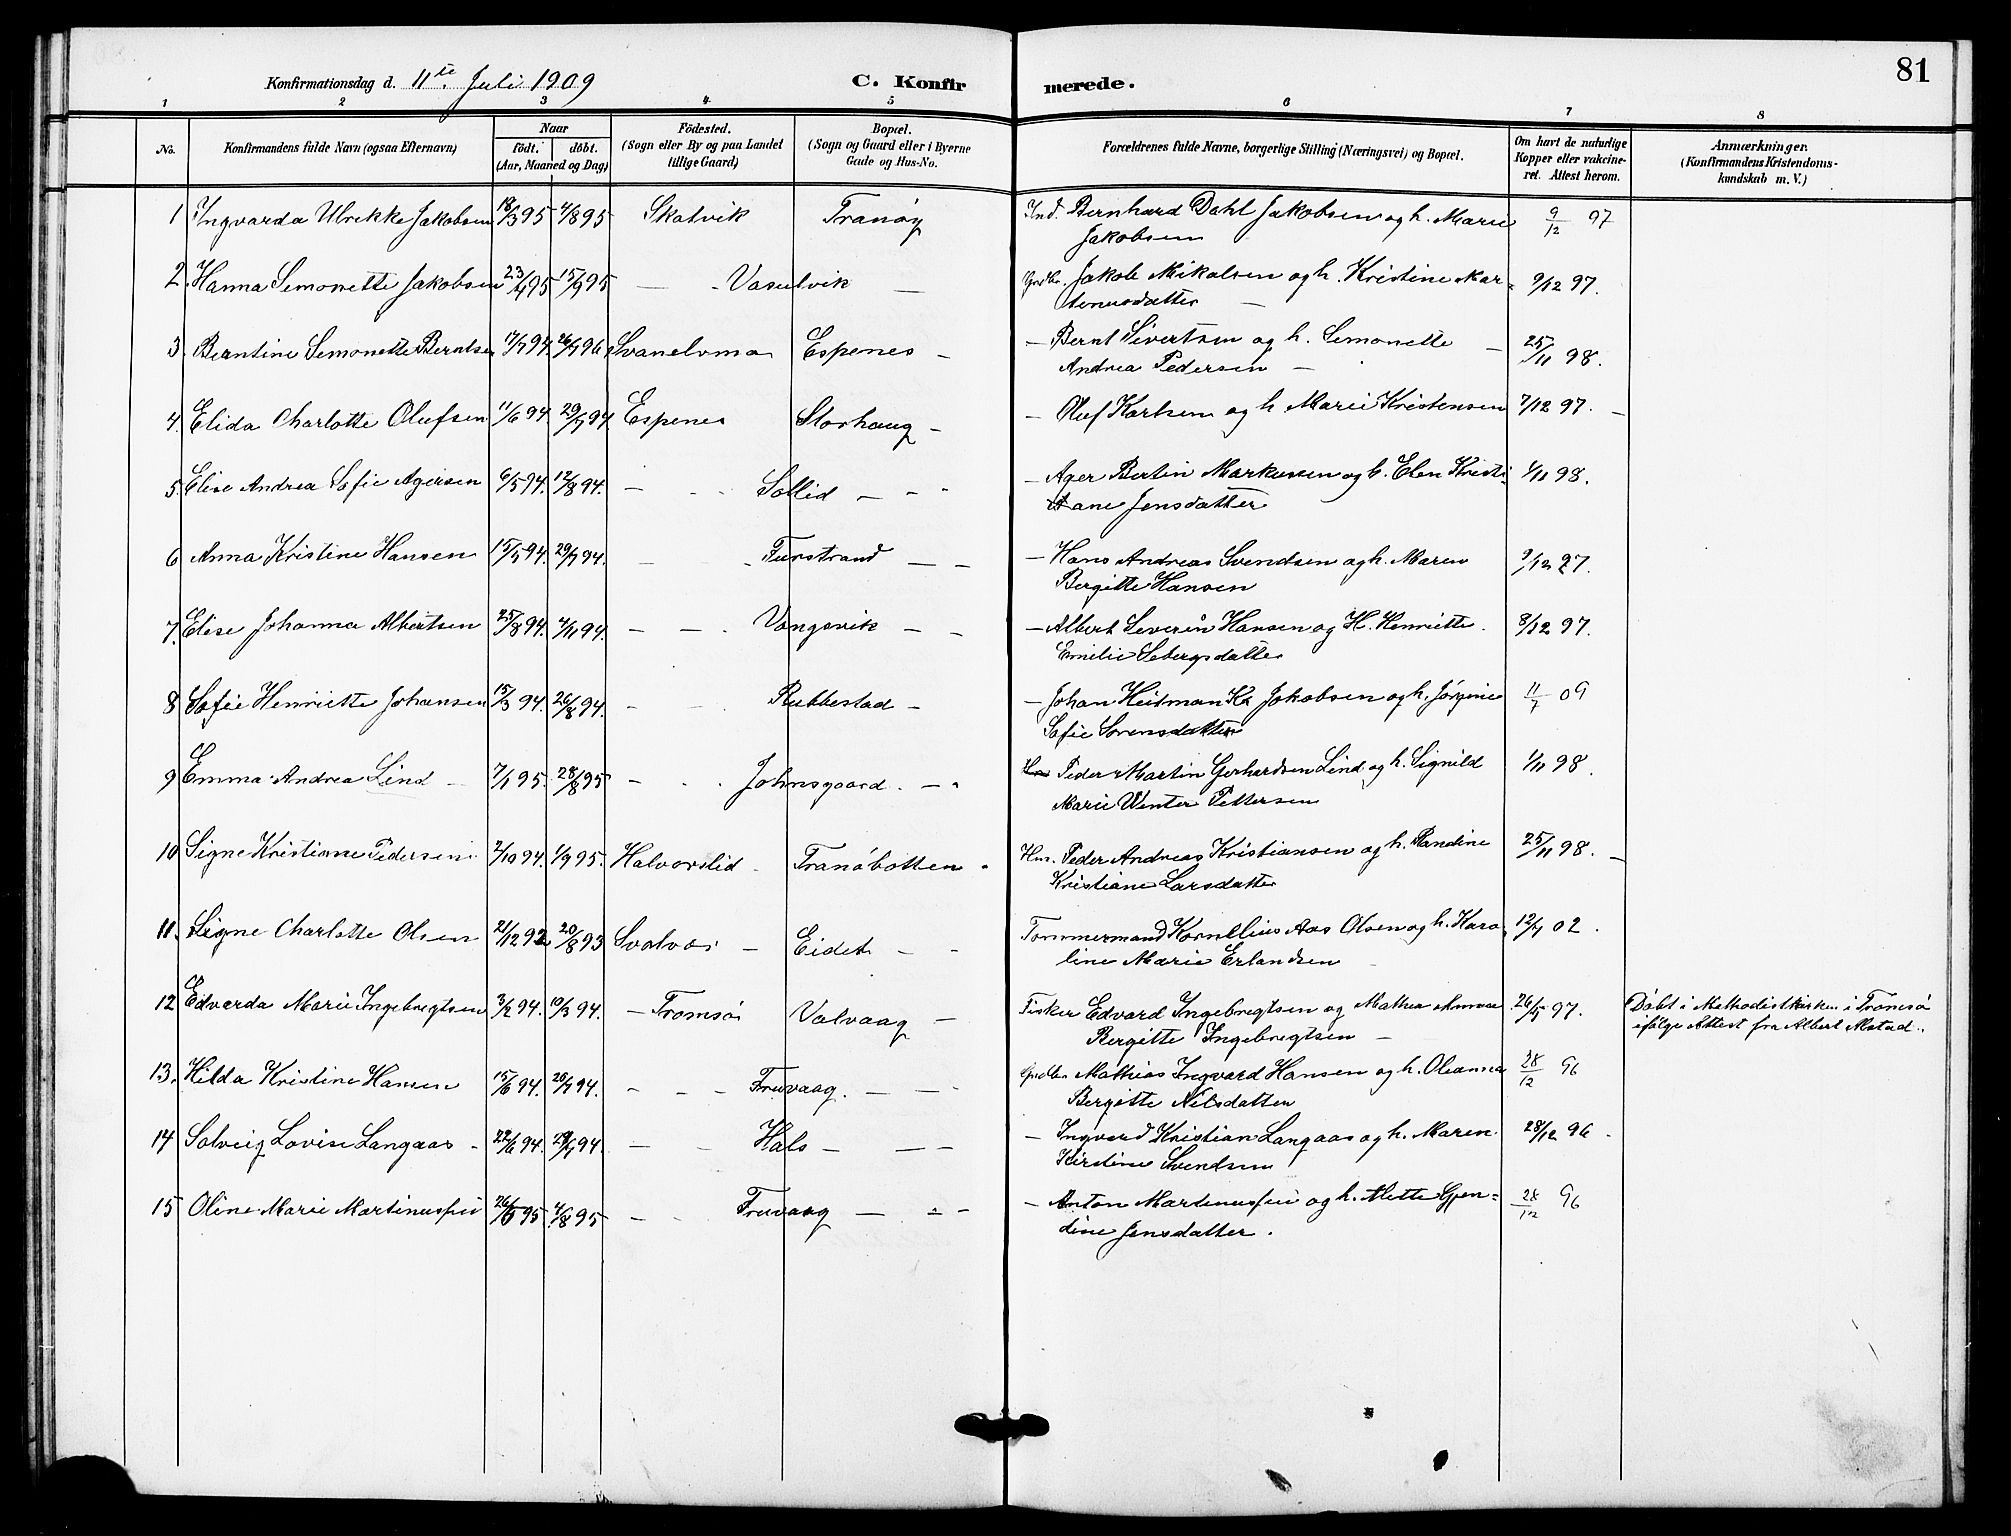 81
Konfirmationsdag d. 11te Juli 1909
C. Konfirmerede.
1 2 3 4 5 6 7 8
No.
Konfirmandens fulde Navn (ogsaa Efternavn)
Naar
födt. döbt.
(Aar, Maaned og Dag)
Födested.
(Sogn eller By og paa Landet
tillige Gaard)
Bopæl.
(Sogn og Gaard eller i Byerne
Gade og Hus-No.
Forældrenes fulde Navne, borgerlige Stilling (Næringsvei) og Bopæl.
Om havt de naturlige
Kopper eller vakcine-
ret. Attest herom.
Anmærkninger.
(Konfirmandens Kristendoms-
kundskab m. V.)
1 Ingvarda Ulrikke Jakobsen 18/3 95 4/8 95 Skatvik Tranøy Ind. Bernhard Dahl Jakobsen og h. Marie 9/12 97
Jakobsen
2. Hanna Semonette Jakobsen 23/4 95 15/9 95 — Vasselvik — Grdbr. Jakob Mikalsen og h. Kristine Mar= 9/12 97.
tenusdatter —
3. Berntine Semonette Berntsen 17/7 94. 26/7 96 Svanelvmo Espenes — — Bernt Sivertsen og h. Semonette — 25/11 98.
Andrea Pedersen —
4. Elida Charlotte Olufsen 11/6 94. 29/7 94 Espenes Storhaug — — Oluf Karlsen og h Marie Kristensen 7/12 97. —
5. Elise Andrea Sofie Agersen 6/5 94. 12/8 94. — Sollid — — Ager Bertin Markussen og h. Elen Kristi 1/11 98.
ane Jensdatter
6 Anna Kristine Hansen 15/5 94. 29/7 94. — Furstrand — — — Hans Andreas Svendsen og h. Maren 9/12 97.
Bergitte Hansen
7. Elise Johanna Albertsen 25/8 94. 4/11 94. — — Vangsvik — — — Albert Severin Hansen og H. Henriette. 8/12 97.
Emilie Sebergsdatter
8 Sofie Henriette Johansen 15/3 94. 26/8 94. — — Rubbestad — — Johan Heitman Jakobsen og h. Jørgine 11/7 09
Sofie Sørensdatter
9 Emma Andrea Lind — 7/1 95. 28/8 95 — Johnsgaard. — Peder Martin Gerhardsen Lind og h. Signild 1/11 98.
Marie Wenter Pettersen
10 Signe Kristiane Pedersen 2/10 94. 1/9 95. Halvorslid Tranöbotten Hus. Peder Andreas Kristiansen og h. Randine 25/11 98. —
Kristiane Larsdatter
11. Signe Charlotte Olsen 21/12 92 20/8 93 Svolvær — Eidet — — Tømmermand Kornelius Aas Olsen og h. Karo 12/7 02.
line Marie Erlandsen —
12 Edvarda Marie Ingebregtsen 3/2 94. 10/3 94. — Tromsö Valvaag — Fisker Edvard Ingebregtsen og Mathea Annæa 26/5 97. Döbt i Methodistkirken i Tromsö
Bergitte Ingebregtsen — ifölge Attest fra Albert
13. Hilda Kristine Hansen 15/6 94. 20/7 94. — — — Fruvaag. — Grdbr. Mathias Ingvard Hansen og h. Oleanna 28/12 96
Bergitte Nilsdatter
14 Solveig Lovise Langaas — 22/6 94. 29/7 94. — — Hals — — — — Ingvard Kristian Langaas og h. Maren 28/12 96.
Kirstine Svendsen
15 Oline Marie Martinussen 26/5 95. 4/8 95 — Fruvaag — — — — Anton Martinussen og h. Mette Gjen= 28/12 96
dine Jensdatter.